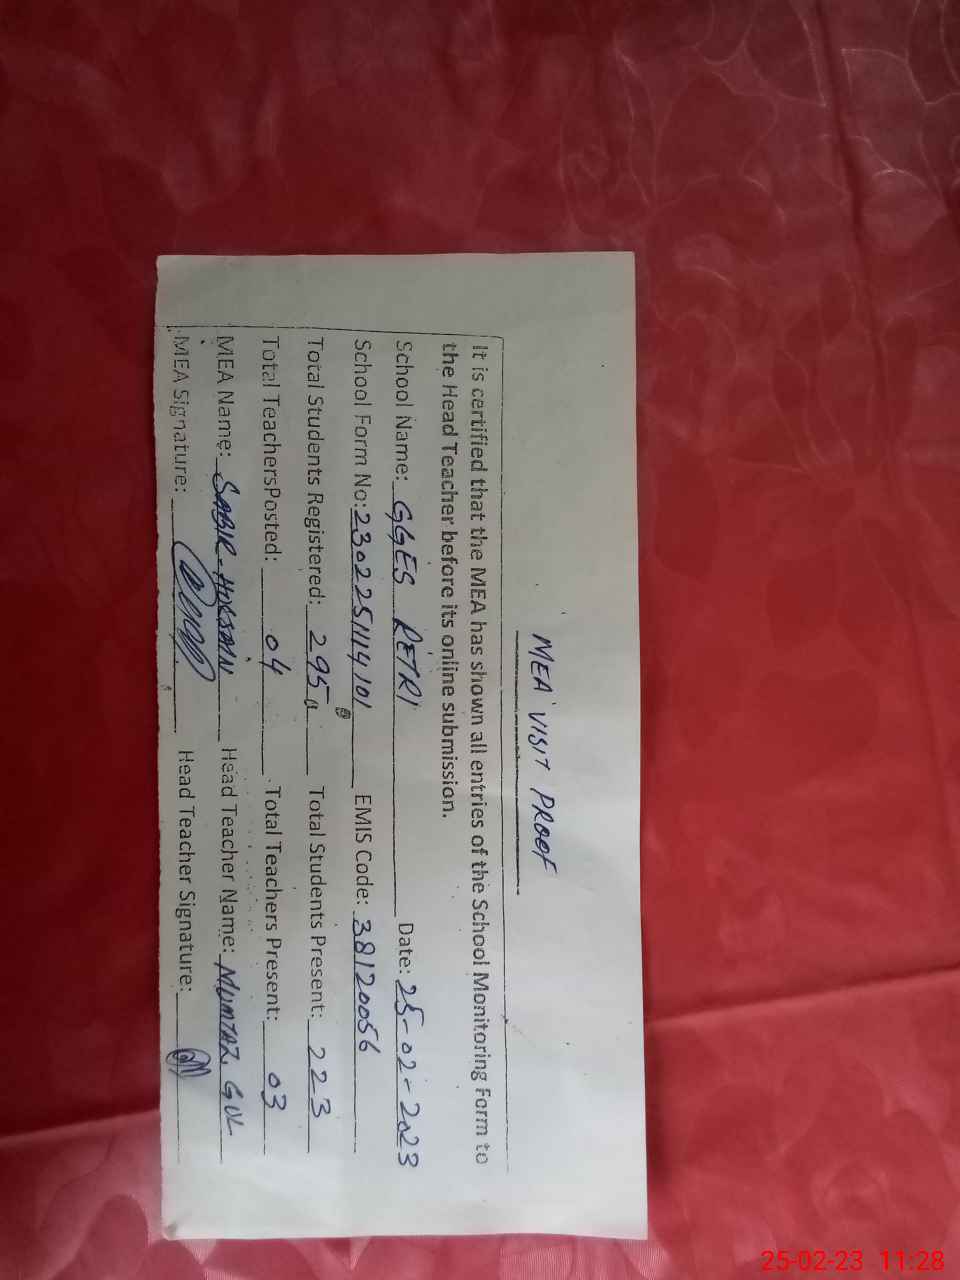 MEA VISIT PROOF
It is certified that the MEA has shown all entries of the School Monitoring Form to
the Head Teacher before its online submission.
School Name: GGES RETRI Date: 25-02-2023
School Form No: 2302251114101 EMIS Code: 38120056
Total Students Registered: 295 Total Students Present: 223
Total TeachersPosted: 04 Total Teachers Present: 03
MEA Name: SABIR-HUSSAIN Head Teacher Name: MUMTAZ GUL
MEA Signature: Head Teacher Signature:
25-02-23 11:28